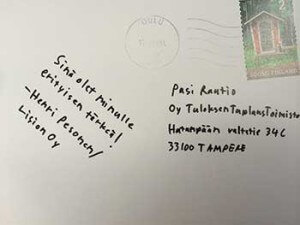 OULU
2
SUOMI FINLAND
Sinä olet minulle
erityisen tärkeä!
-Henri Pesonen/
Lision Oy
Pasi Rautio
Oy Tuloksen Tuplaus Toimisto
Hatanpään valtatie 34C
33100 TAMPERE